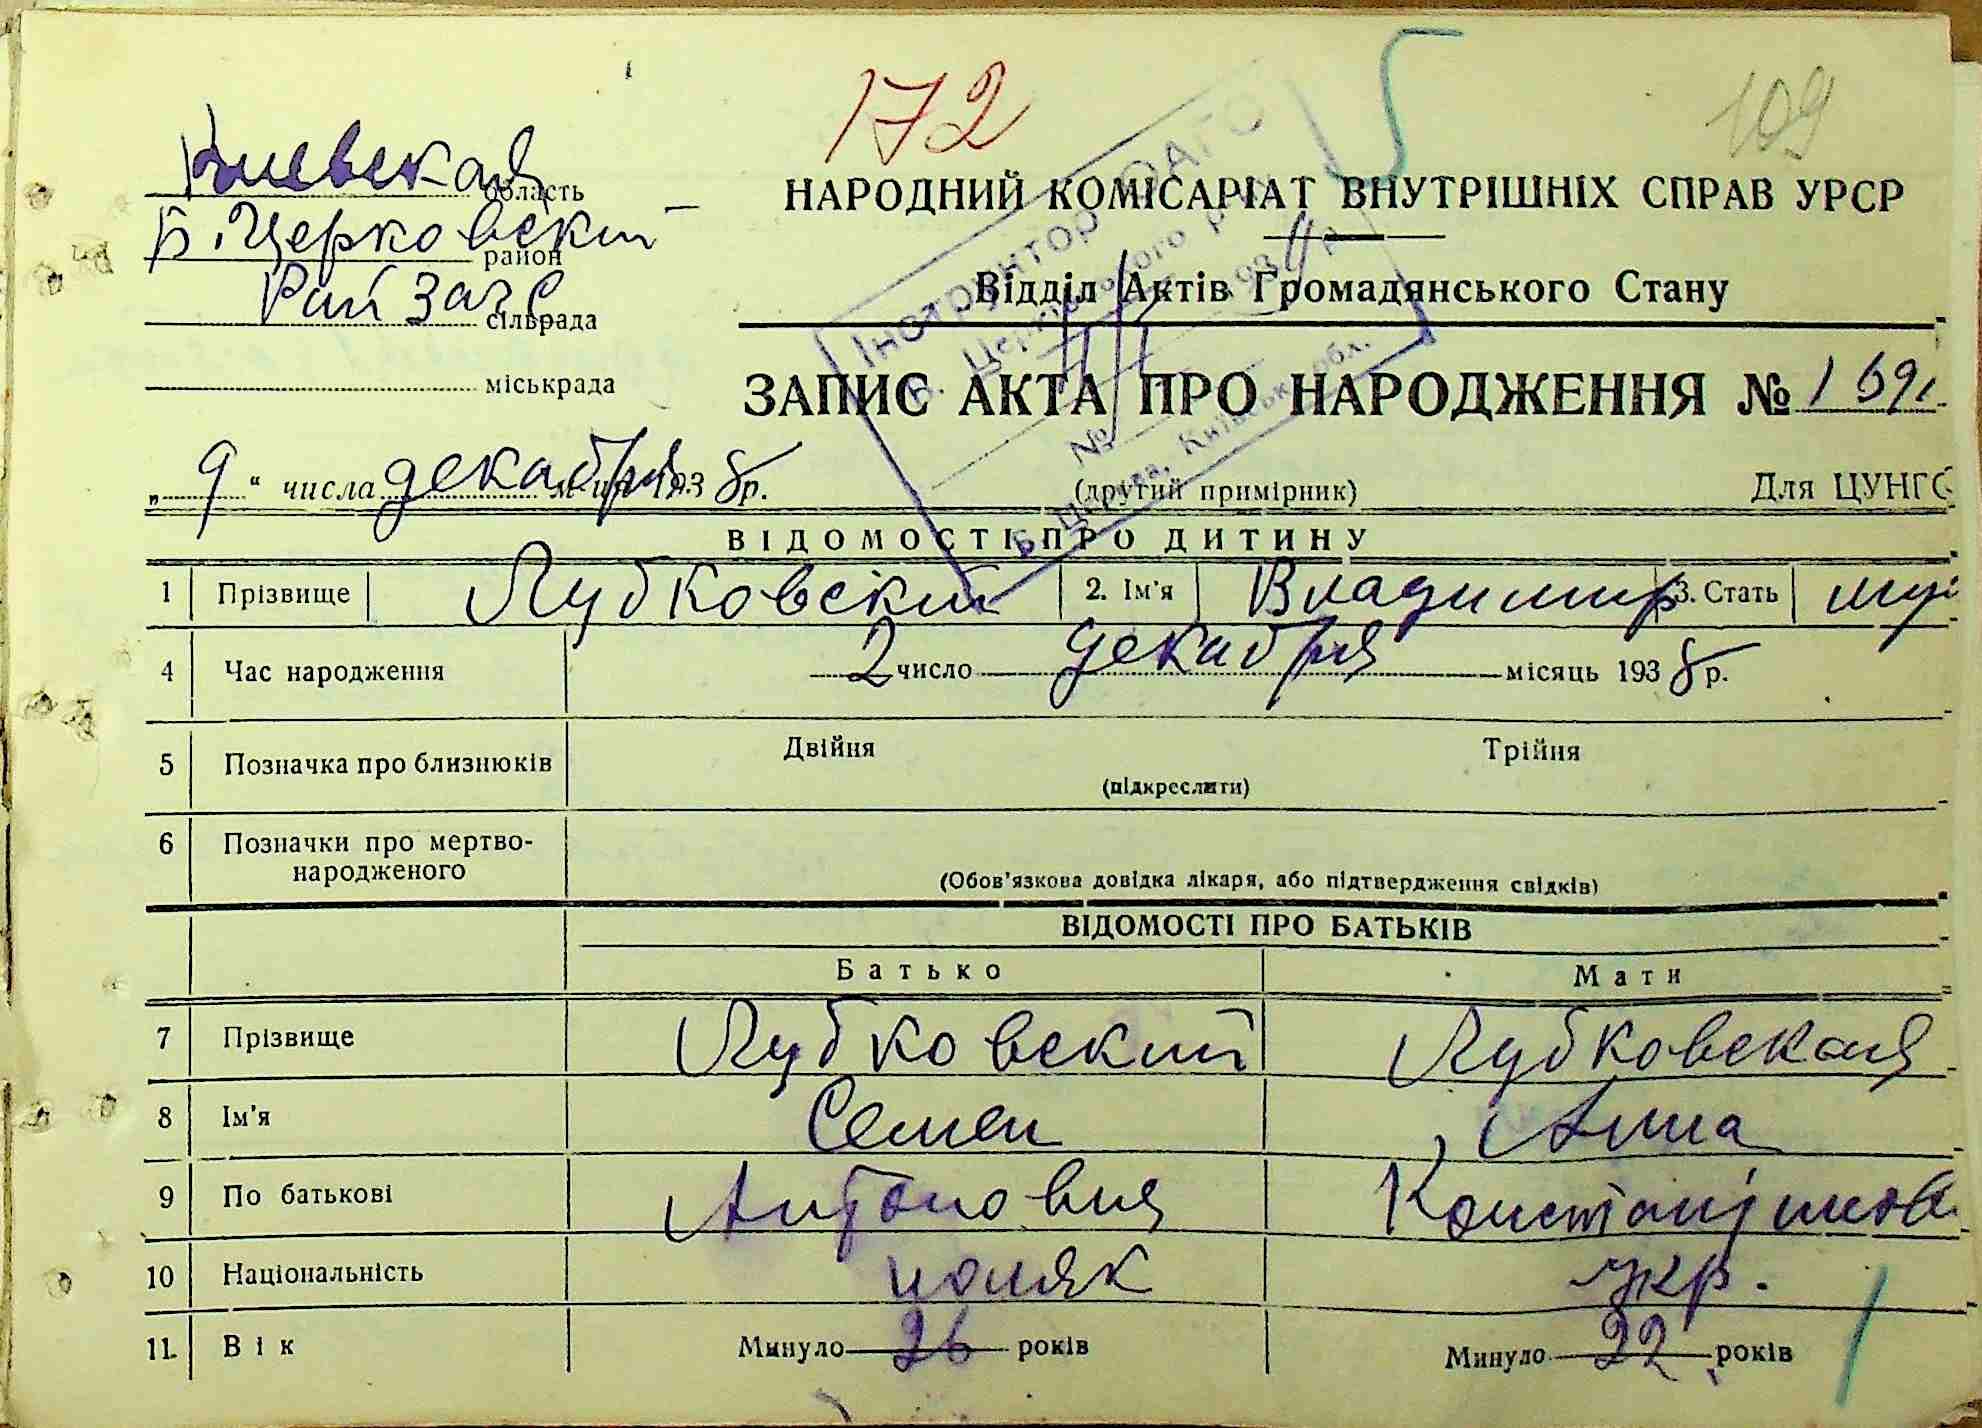 172
109
Киевская область
Б. Церковский район
Рай Загс сільрада
міськрада
НАРОДНИЙ КОМІСАРІАТ ВНУТРІШНІХ СПРАВ УРСР
Відділ Актів Громадянського Стану
ЗАПИС АКТА ПРО НАРОДЖЕННЯ №
Інструктор ОАГС
Б. Церківського р
193 р.
№
Б. Церква, Київськ. обл.
„9“ числа декабря м-ця 1938 р.
(другий примірник)
Для ЦУНГО
ВІДОМОСТІ ПРО ДИТИНУ
1 Прізвище Лубковский 2. Ім'я Владимир 3. Стать муж
4 Час народження 2 число декабря місяць 1938 р.
5 Позначка про близнюків Двійня Трійня
(підкреслити)
6 Позначки про мертво-
народженого
(Обов'язкова довідка лікаря, або підтвердження свідків)
ВІДОМОСТІ ПРО БАТЬКІВ
Батько Мати
7 Прізвище Лубковский Лубковская
8 Ім'я Семен Анна
9 По батькові Антонович Константинов
10 Національність поляк укр.
11. Вік Минуло 26 років Минуло 22 років